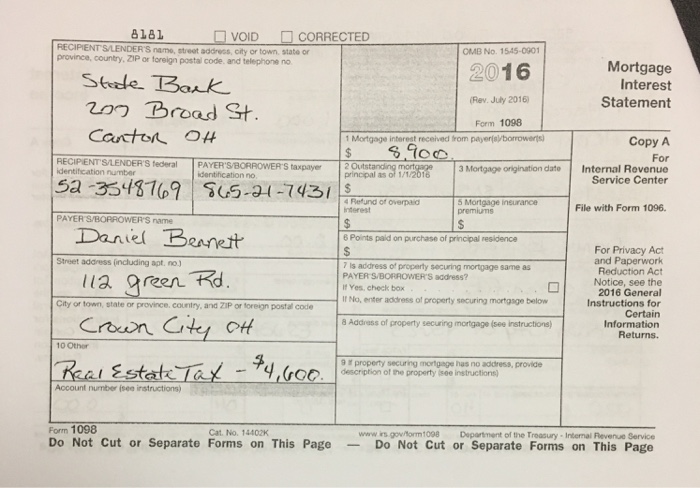 8181 VOID CORRECTED
RECIPIENT'S/LENDER'S name, street address, city or town, state or
province, country, ZIP or foreign postal code, and telephone no.
State Bank
200 Broad St.
Canton OH
OMB No. 1545-0901
2016
(Rev. July 2016)
Form 1098
Mortgage
Interest
Statement
1 Mortgage interest received from payer(s)/borrower(s)
$ 8,900.
Copy A
For
Internal Revenue
Service Center
File with Form 1096.
RECIPIENT'S/LENDER'S federal
identification number
52-3548769
PAYER'S/BORROWER'S taxpayer
identification no.
565-21-7431
2 Outstanding mortgage
principal as of 1/1/2016
$
3 Mortgage origination date
4 Refund of overpaid
interest
$
5 Mortgage insurance
premiums
$
PAYER'S/BORROWER'S name
Daniel Bennett
6 Points paid on purchase of principal residence
$
For Privacy Act
and Paperwork
Reduction Act
Notice, see the
2016 General
Instructions for
Certain
Information
Returns.
Street address (including apt. no.)
112 green Rd.
7 Is address of property securing mortgage same as
PAYER'S/BORROWER'S address?
If Yes, check box
If No, enter address of property securing mortgage below
City or town, state or province, country, and ZIP or foreign postal code
Crown City OH
8 Address of property securing mortgage (see instructions)
10 Other
Real Estate Tax - $4,600.
9 If property securing mortgage has no address, provide
description of the property (see instructions)
Account number (see instructions)
Form 1098
Cat. No. 14402K
www.irs.gov/form1098
Department of the Treasury - Internal Revenue Service
Do Not Cut or Separate Forms on This Page — Do Not Cut or Separate Forms on This Page